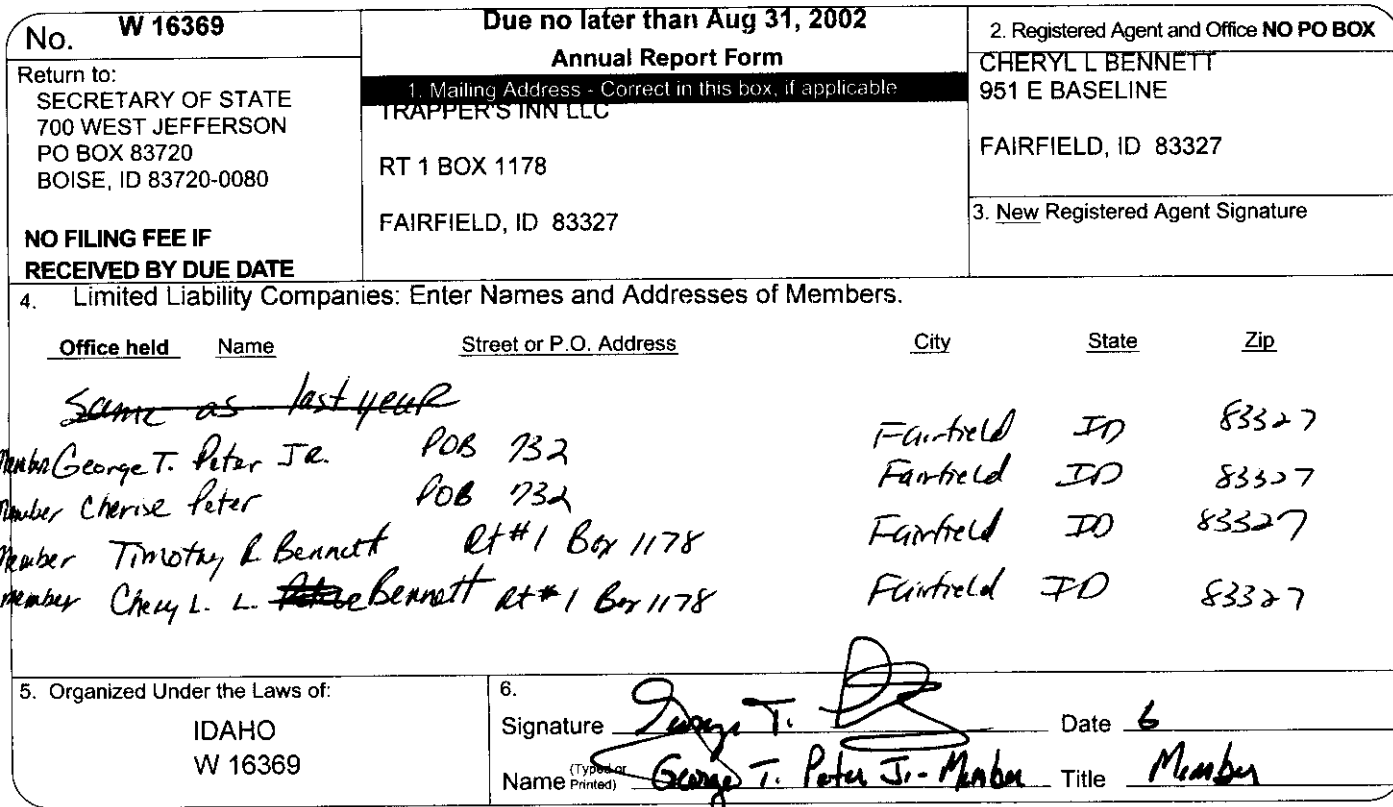 No. W 16369
Return to:
SECRETARY OF STATE
700 WEST JEFFERSON
PO BOX 83720
BOISE, ID 83720-0080
NO FILING FEE IF
RECEIVED BY DUE DATE
Due no later than Aug 31, 2002
Annual Report Form
1. Mailing Address - Correct in this box, if applicable
TRAPPER'S INN LLC
RT 1 BOX 1178
FAIRFIELD, ID 83327
2. Registered Agent and Office NO PO BOX
CHERYL L BENNETT
951 E BASELINE
FAIRFIELD, ID 83327
3. New Registered Agent Signature
4. Limited Liability Companies: Enter Names and Addresses of Members.
Office held Name Street or P.O. Address City State Zip
Same as last year
Member George T. Peter JR. POB 732 Fairfield ID 83327
Member Cherise Peter POB 732 Fairfield ID 83327
Member Timothy R Bennett Rt #1 Box 1178 Fairfield ID 83327
Member Chery L. L. Bennett Rt #1 Box 1178 Fairfield ID 83327
5. Organized Under the Laws of:
IDAHO
W 16369
6.
Signature George T. Date 6
Name (Typed or Printed) George T. Peter Jr - Member Title Member